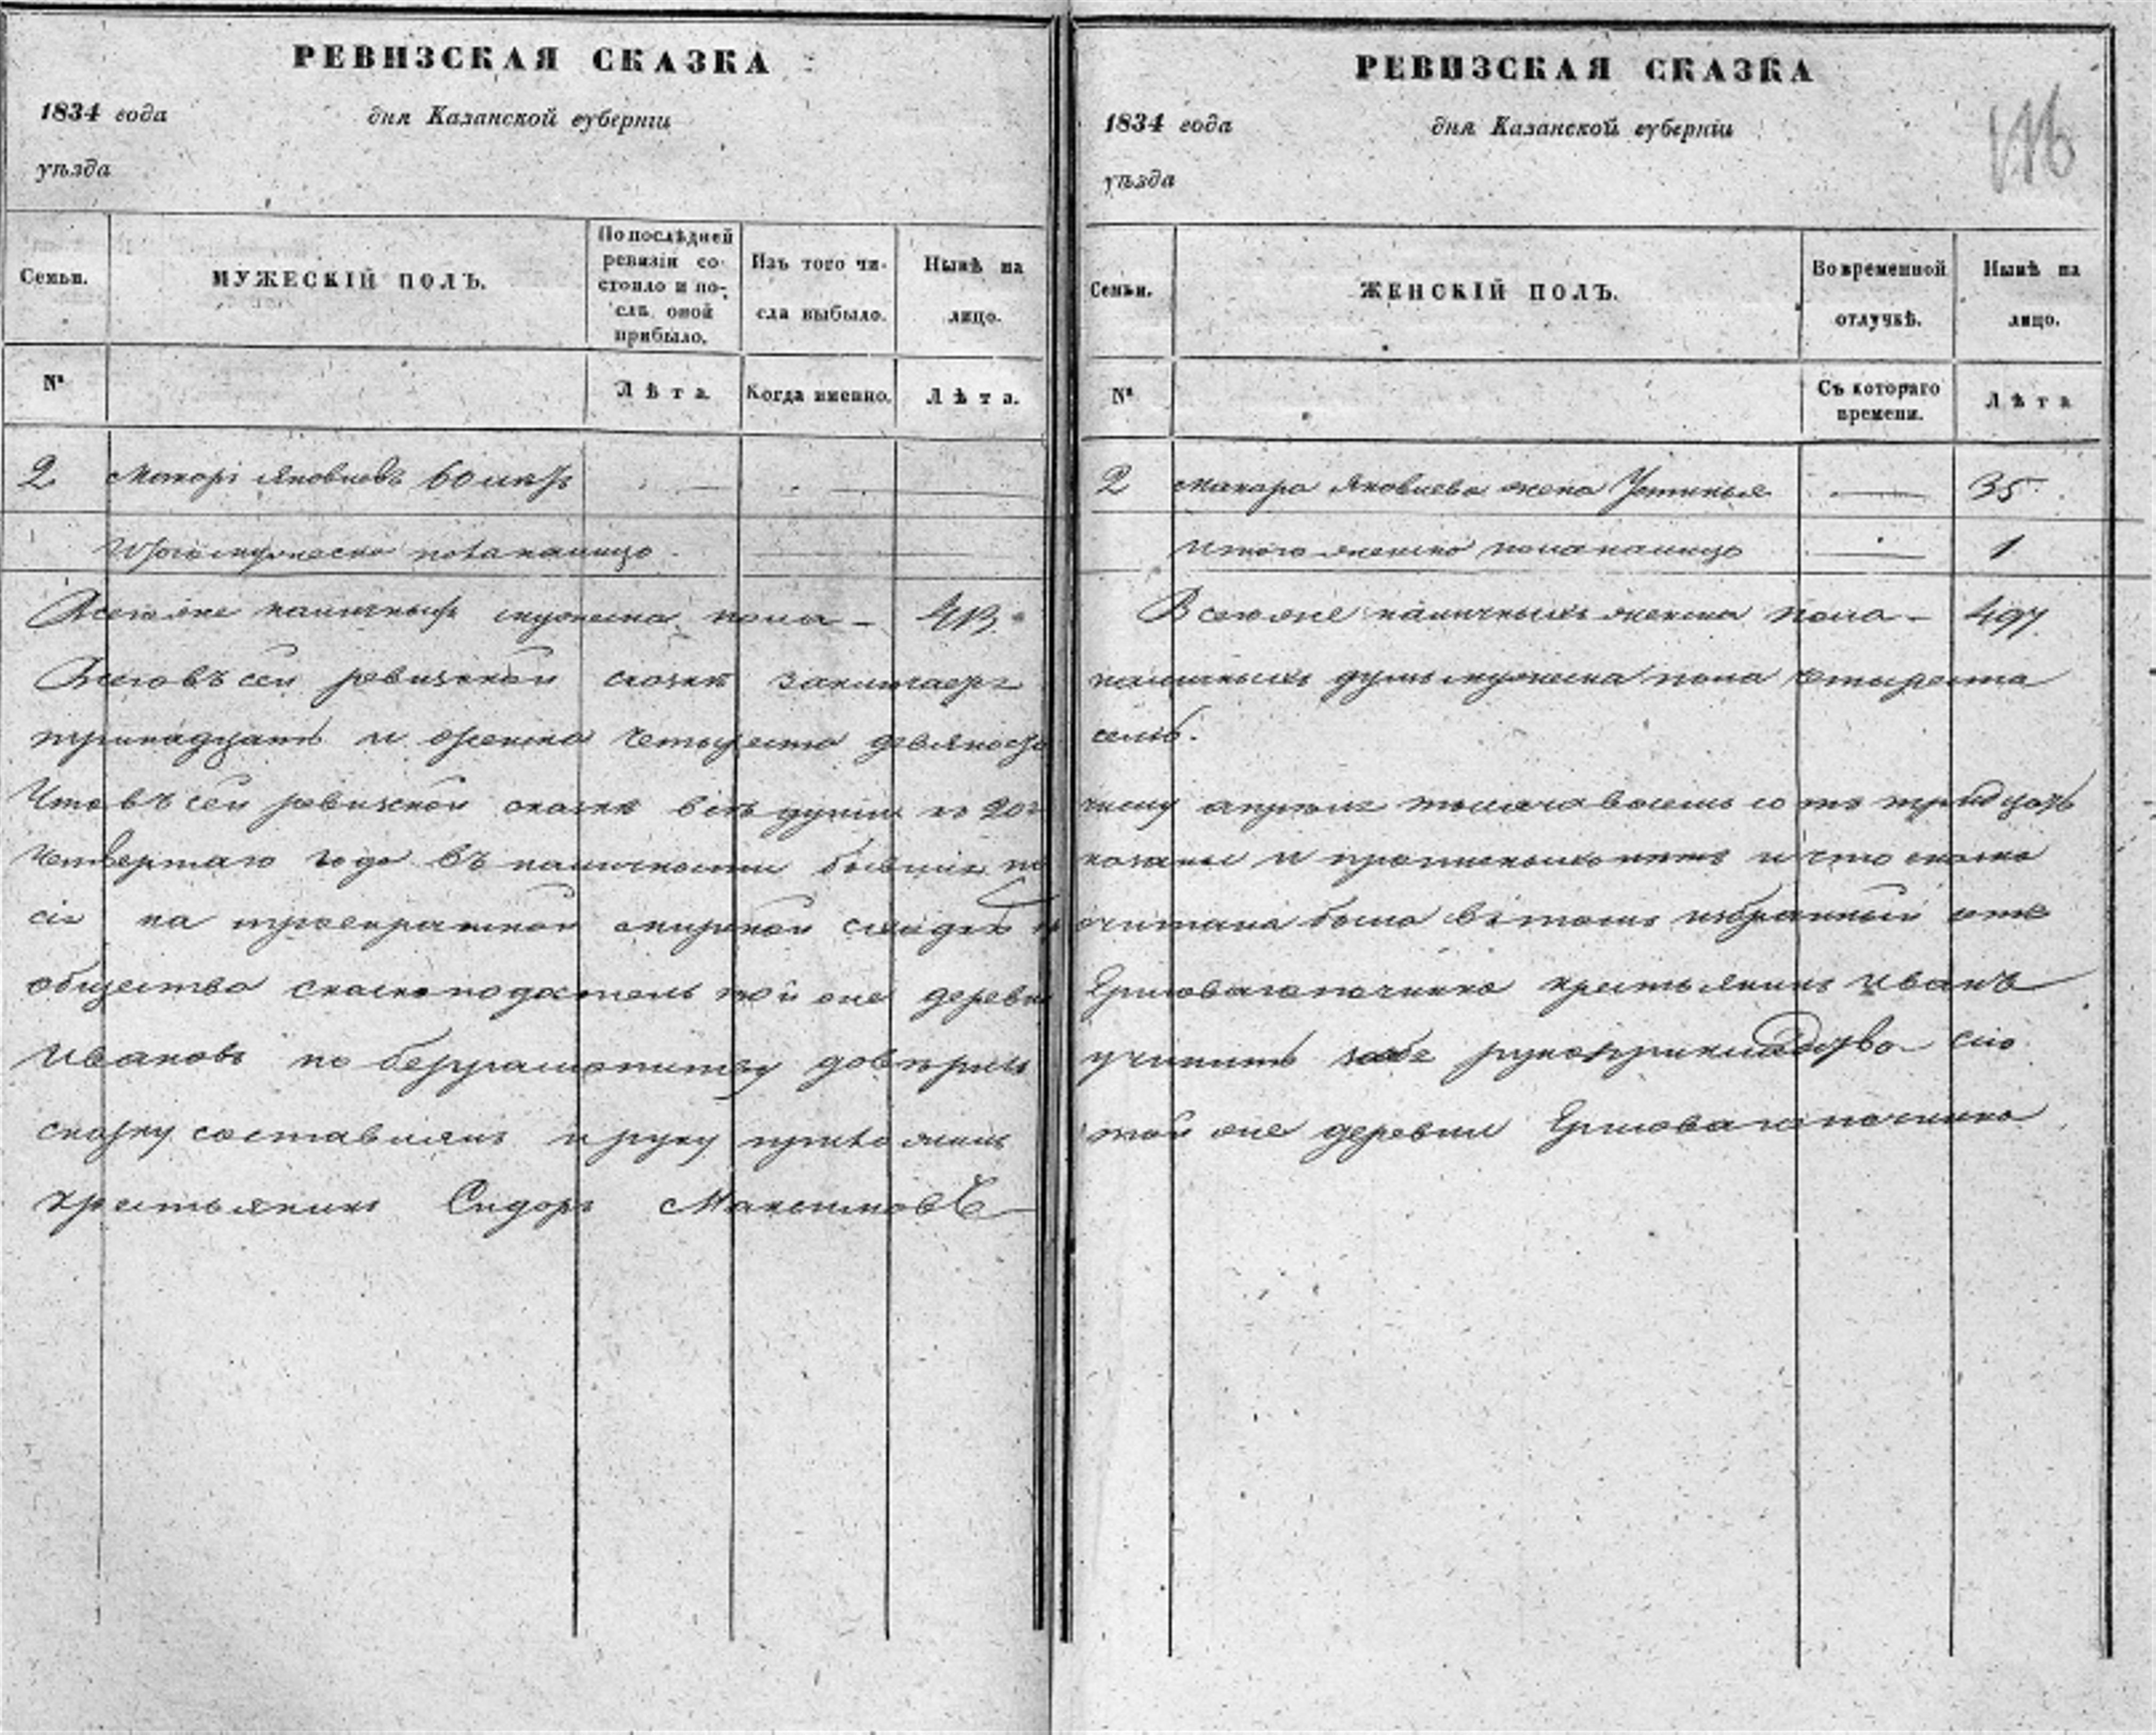 РЕВИЗСКАЯ СКАЗКА
1834 года дня Казанской губерніи
уѣзда
Семьи.
МУЖЕСКІЙ ПОЛЪ.
По послѣдней
ревизіи со-
стояло и по-
слѣ оной
прибыло.
Изъ того чи-
сла выбыло.
Нынѣ на
лицо.
№
Лѣта.
Когда именно.
Лѣта.
2 Макаръ Яковлевъ 60 лѣтъ
Итого мужеска пола налицо
Всего же наличныхъ мужеска пола — 413.
Всего въ сей ревизской сказкѣ заключается
тринадцать и женска четыреста девяносто
Что въ сей ревизской сказкѣ всѣ души къ 20
четвертаго года въ наличности бывшія по
сія на троекратной мирской сходкѣ
общества сказкоподатель той же деревни
Ивановъ по безграмотству довѣрилъ
сказку составлялъ и руку приложилъ
крестьянинъ Сидоръ Максимовъ
РЕВИЗСКАЯ СКАЗКА
1834 года дня Казанской губерніи
уѣзда
116
Семьи.
ЖЕНСКІЙ ПОЛЪ.
Во временной
отлучкѣ.
Нынѣ на
лицо.
№
Съ котораго
времени.
Лѣта
2 Макара Яковлева жена Устинья — 35.
Итого женска пола налицо — 1
Всего же наличныхъ женска пола — 497.
наличныхъ душъ мужеска пола четыреста
семь.
числу апрѣля тысяча восемь сотъ тридцать
показаны и прописныхъ нѣтъ и что сказка
читана была въ томъ избранный отъ
Ермоваго починка крестьянинъ Иванъ
учинить рукоприкладство сію
той же деревни Ермоваго починка